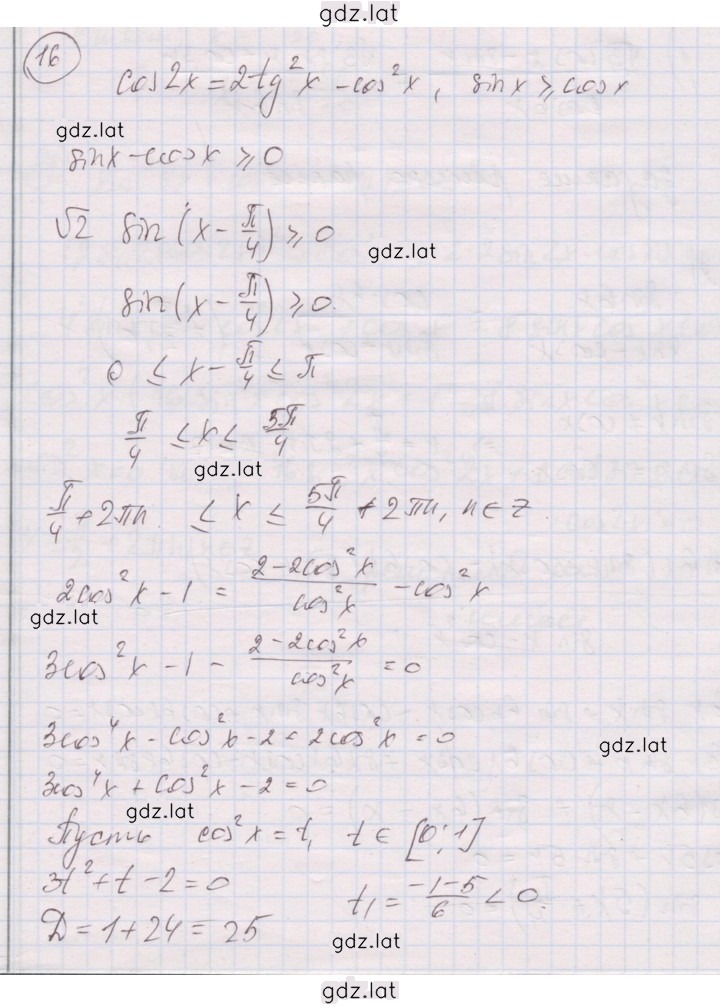 gdz.lat
16
cos2x = 2tg²x - cos²x, sinx ≥ cosx
gdz.lat
sinx - cosx ≥ 0
√2 sin(x - π/4) ≥ 0
gdz.lat
sin(x - π/4) ≥ 0.
0 ≤ x - π/4 ≤ π
π/4 ≤ x ≤ 5π/4
gdz.lat
π/4 + 2πn ≤ x ≤ 5π/4 + 2πn, n ∈ Z
2cos²x - 1 = (2 - 2cos²x)/cos²x - cos²x
gdz.lat
3cos²x - 1 - (2 - 2cos²x)/cos²x = 0
3cos⁴x - cos²x - 2 + 2cos²x = 0
gdz.lat
3cos⁴x + cos²x - 2 = 0
gdz.lat
Пусть cos²x = t, t ∈ [0; 1]
3t² + t - 2 = 0
t₁ = (-1-5)/6 < 0.
D = 1 + 24 = 25
gdz.lat
gdz.lat